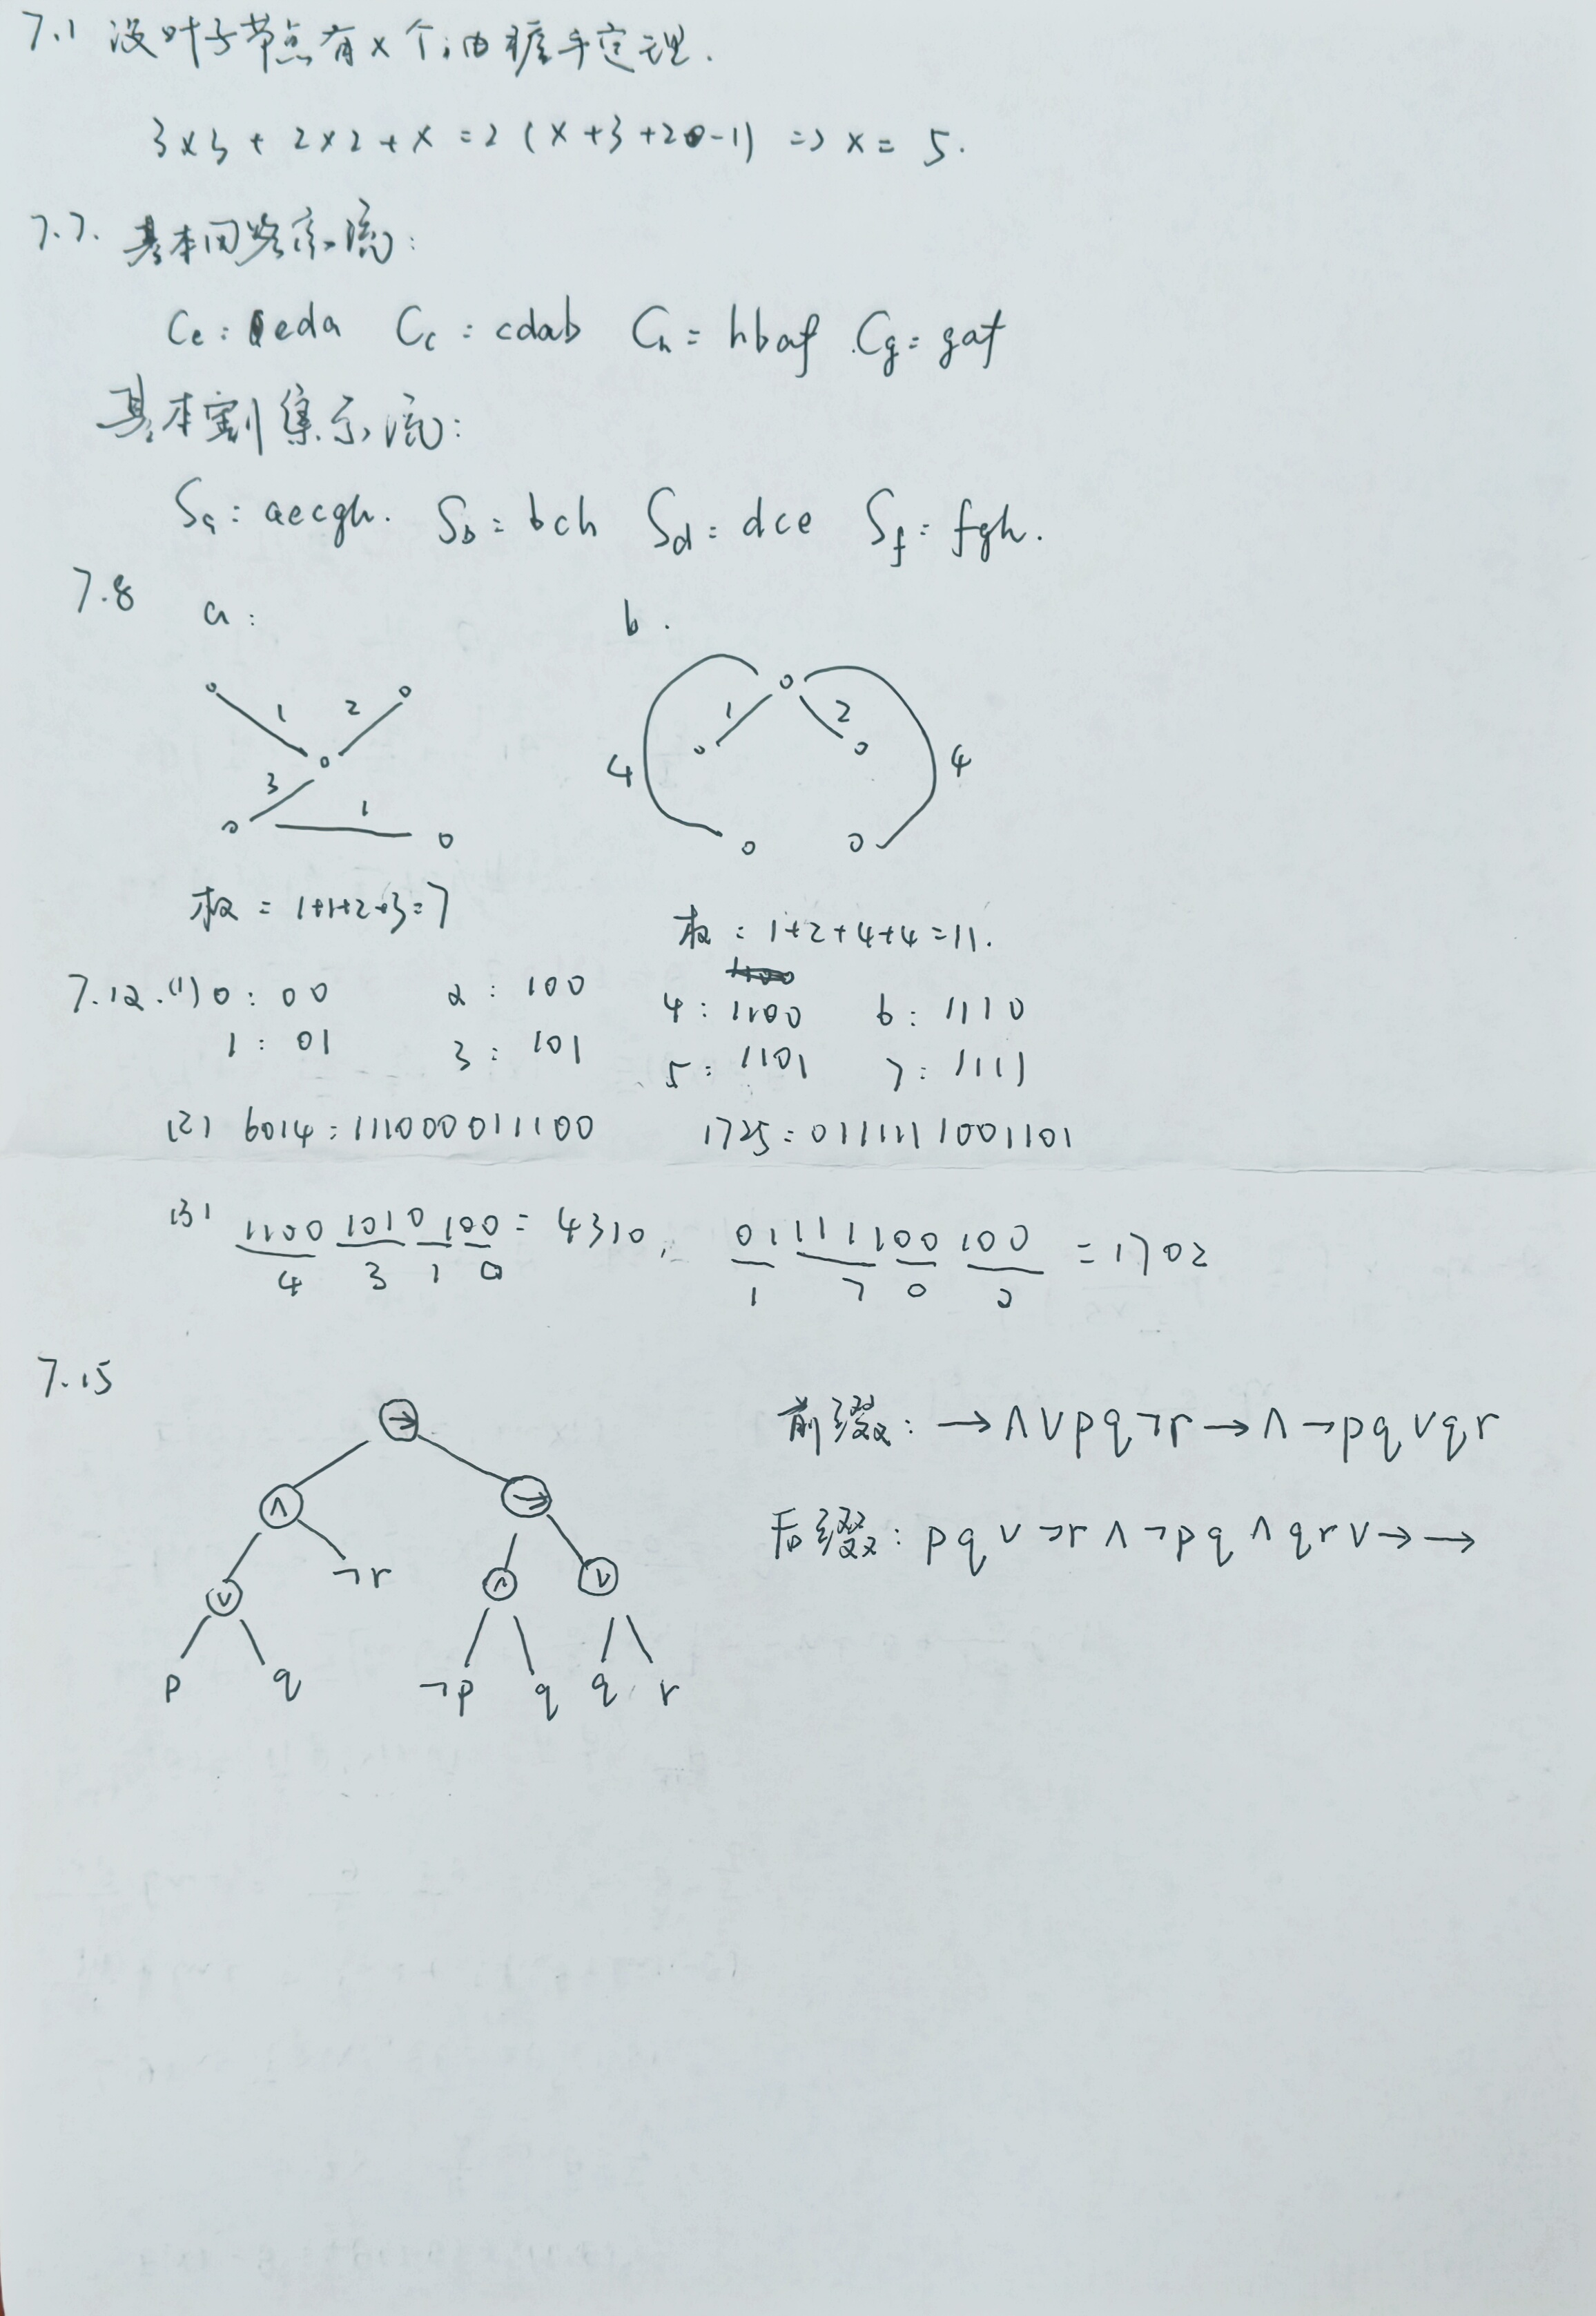 7.1 设叶子节点有x个,由握手定理.
3×3+2×2+x=2(x+3+2-1) => x=5.
7.7. 基本回路系统:
Ce: eda Cc: cdab Ch= hbaf Cg= gaf
基本割集系统:
Sa: aecgh. Sb= bch Sd= dce Sf= fgh.
7.8 a: b.
1 2 1 2
3 4 4
1
权=1+1+2+3=7
权:1+2+4+4=11.
7.12.(1) 0: 00 2: 100 4: 1100 6: 1110
1: 01 3: 101 5: 1101 7: 1111
(2) 6014=111000011100 1725=0111111001101
(3) 1100 1010 100=4310, 01111100100=1702
4 3 1 0 1 7 0 2
7.15
→ 前缀: →∧∨pq¬r→∧¬pq∨qr
∧ → 后缀: pq∨¬r∧¬pq∧qr∨→→
∨ ¬r ∧ ∨
p q ¬p q q r